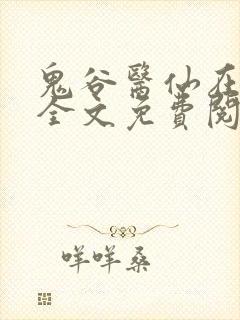 鬼谷醫仙在
全文免費閱
咩咩桑